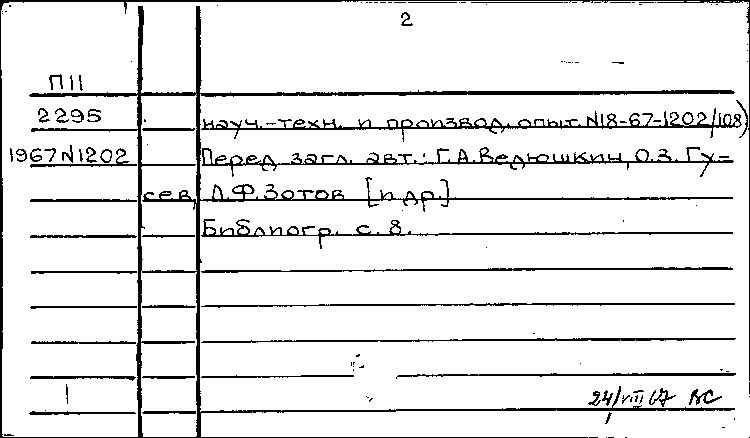 2
П11
2295 науч.-техн. и производ. опыт. N18-67-1202/108)
1967N1202 Перед загл. авт.: Г.А.Ведюшкин, О.З. Гу=
сев, Л.Ф.Зотов [и др.]
Библиогр. с. 8.
24/VIII 67 ВС